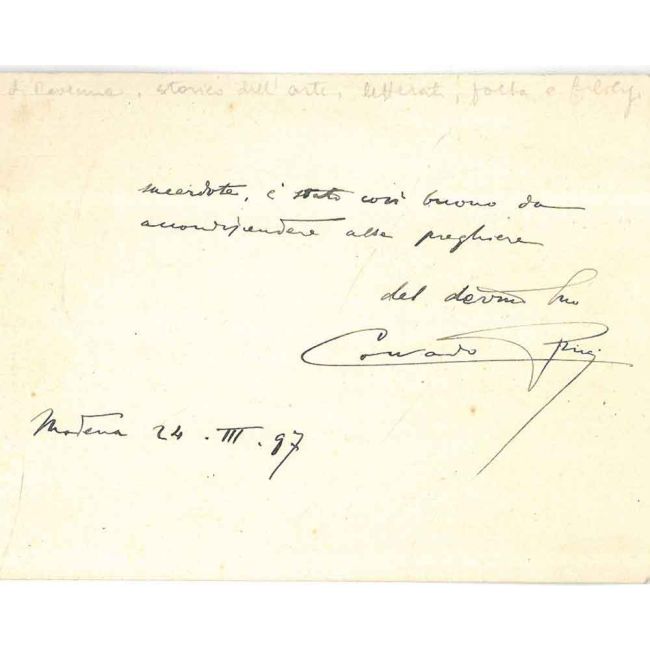 di Ravenna, storico dell'arte, letterato, poeta e filolog.
sacerdote, è stato così buono da
accondiscendere alle preghiere
del dev.mo Suo
Corrado Ricci
Modena 24 . III . 97